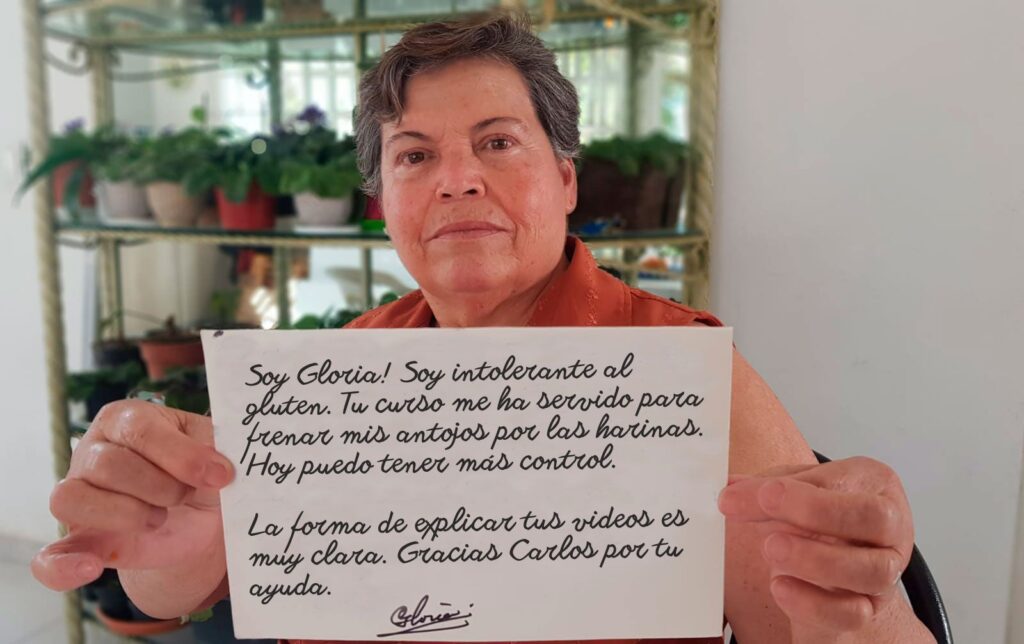 Soy Gloria! Soy intolerante al
gluten. Tu curso me ha servido para
frenar mis antojos por las harinas.
Hoy puedo tener más control.
La forma de explicar tus videos es
muy clara. Gracias Carlos por tu
ayuda.
Gloria